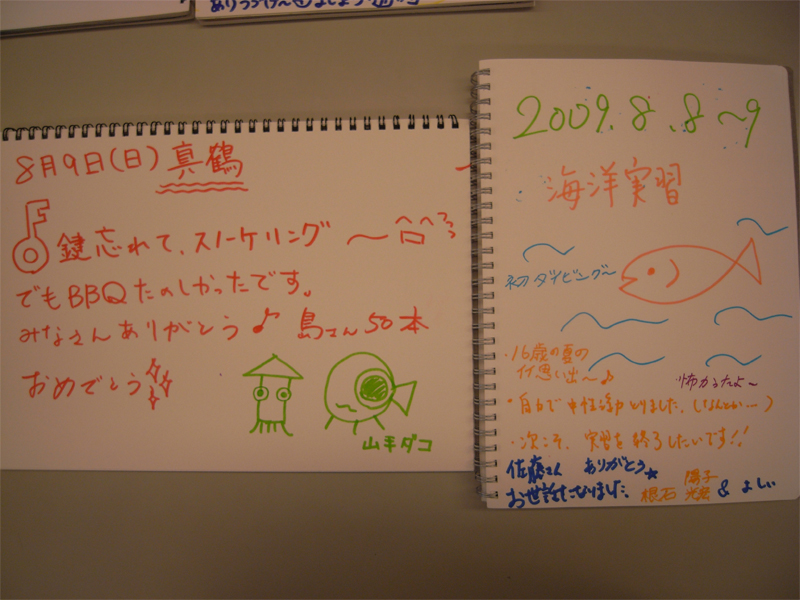 8月9日(日) 真鶴
鍵忘れて、スノーケリング
でもBBQたのしかったです。
みなさんありがとう♪ 島さん50本
おめでとう
山手ダコ
2009.8.8〜9
海洋実習
初ダイビング〜
・16歳の夏の
イイ思い出〜♪
怖かったよ〜
・自力で中性浮力とりました、(なんとか…)
・次こそ、実習を終了したいです!!
佐藤さん ありがとう★
お世話になりました
根石 陽子
& よしい